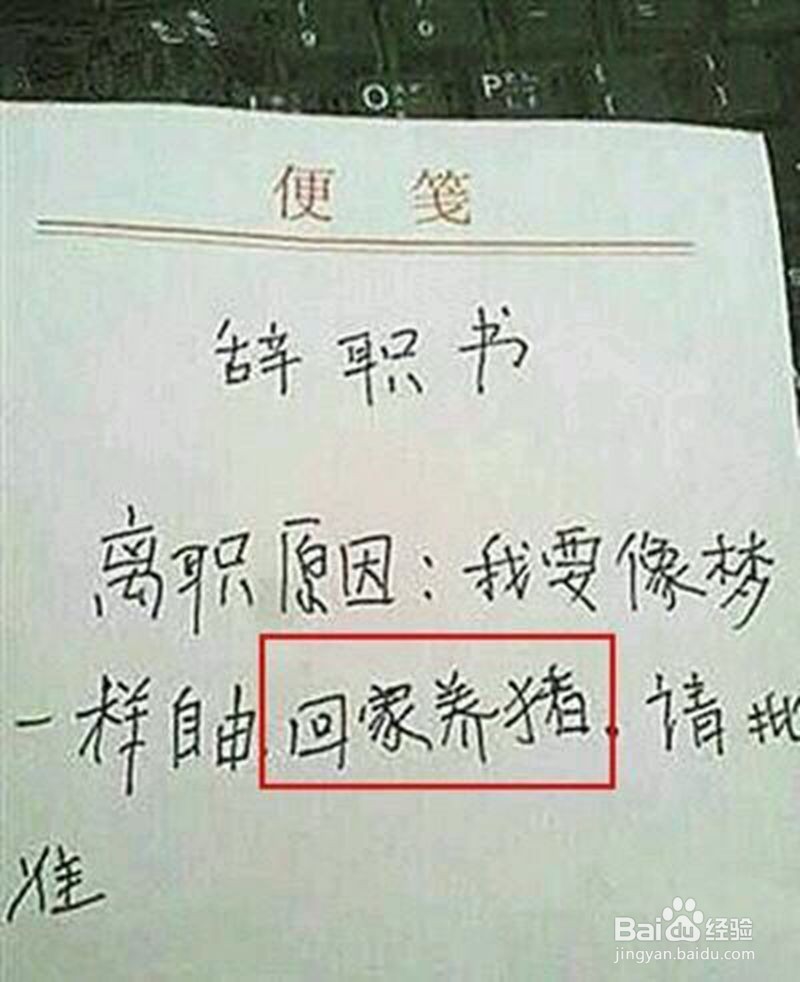 O P
便 笺
辞职书
离职原因：我要像梦
一样自由.回家养猪.请批
准
Baidu经验
jingyan.baidu.com